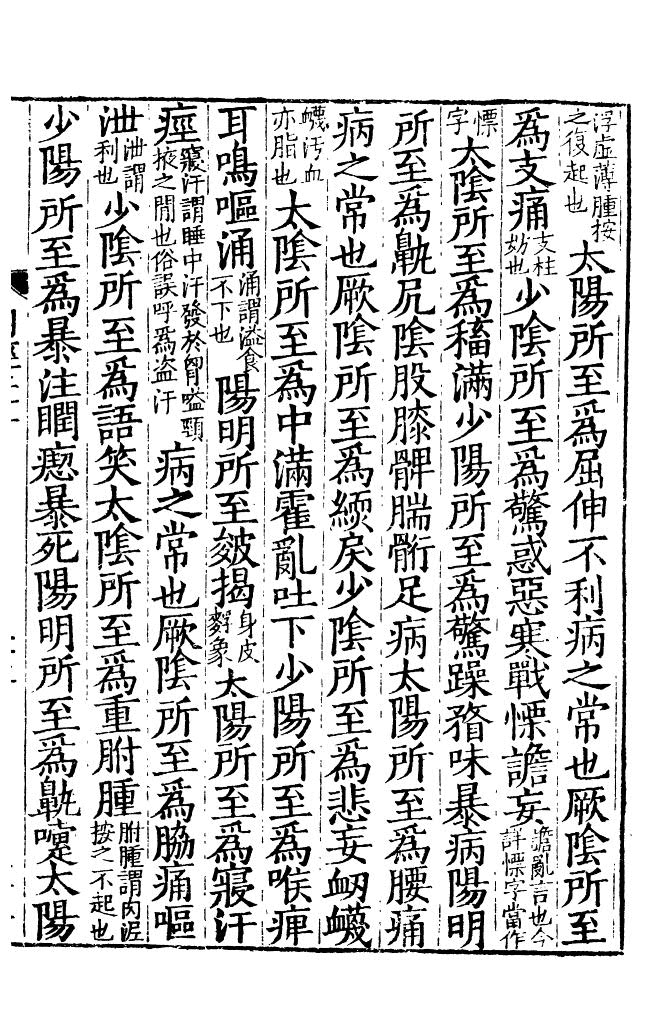 浮虛薄腫按之復起也太陽所至爲屈伸不利病之常也厥陰所至
爲支痛支柱妨也少陰所至爲驚惑惡寒戰慄譫妄譫亂言也今詳慄字當作
慄字太陰所至爲稸滿少陽所至爲驚躁瞀昧暴病陽明
所至爲鼽尻陰股膝髀腨䯒足病太陽所至爲腰痛
病之常也厥陰所至爲緛戾少陰所至爲悲妄衂衊
衊汚血亦脂也太陰所至爲中滿霍亂吐下少陽所至爲喉痺
耳鳴嘔涌涌謂溢食不下也陽明所至皴揭身皮麨象太陽所至爲寢汗
痙寢汗謂睡中汗發於胷嗌頸掖之間也俗誤呼爲盗汗病之常也厥陰所至爲脇痛嘔
泄泄謂利也少陰所至爲語笑太陰所至爲重胕腫胕腫謂肉泥按之不起也
少陽所至爲暴注瞤瘛暴死陽明所至爲鼽嚏太陽